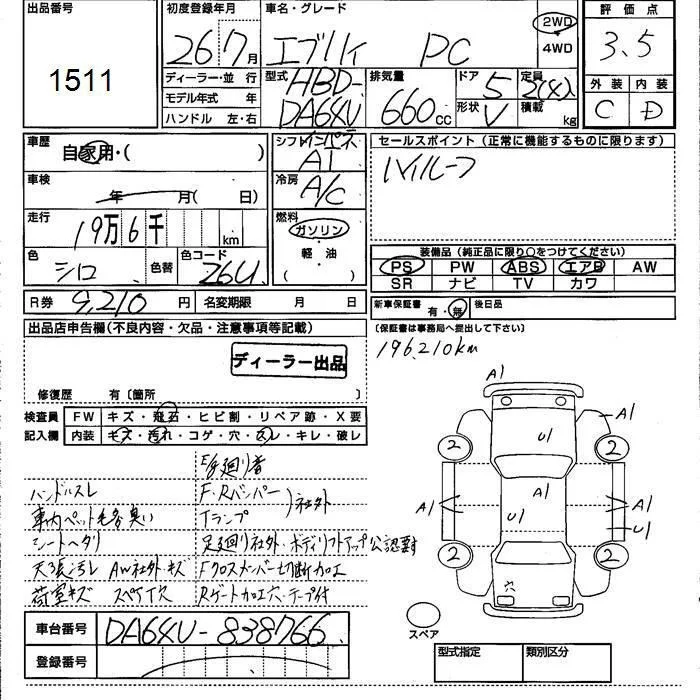 出品番号
1511
初度登録年月
26 7月
車名・グレード
エブリィ PC
2WD
4WD
評価点
3.5
外装 内装
C D
ディーラー・並行
モデル年式 年
ハンドル 左・右
型式 HBD-
DA64V
排気量
660cc
ドア 5
形状 V
定員 2(4)人
積載 kg
車歴
自家用・( )
車検
年 月( 日)
走行
19万6千 km
色
シロ
色替
色コード
26U
R券 9,210円
名変期限 月 日
シフト インパネ
AT
冷房
A/C
燃料
ガソリン
軽油
セールスポイント (正常に機能するものに限ります)
ハイルーフ
装備品 (純正品に限り○をつけてください)
PS PW ABS エアB AW
SR ナビ TV カワ
新車保証書 有・無 後日品
(保証書は事務局へ提出して下さい)
196,210km
出品店申告欄(不良内容・欠品・注意事項等記載)
ディーラー出品
修復歴 有〔箇所 〕
検査員
記入欄
FW キズ・飛石・ヒビ割・リペア跡・X要
内装 キズ・汚れ・コゲ・穴・スレ・キレ・破レ
ハンドルスレ
車内ペット毛多臭い
シートヘタリ
天張汚レ AW社外・キズ
荷室キズ スペア欠
F.Rバンパー
Tランプ
社外
足廻り社外・ボディリフトアップ公認要す
Fクロスメンバー切断加工
Rゲート加工穴・テープ付
A1
A1
U1
A1
A1
A1
U1
U1
2
2
2
2
穴
スペア
車台番号 DA64V-838766
登録番号
型式指定 類別区分